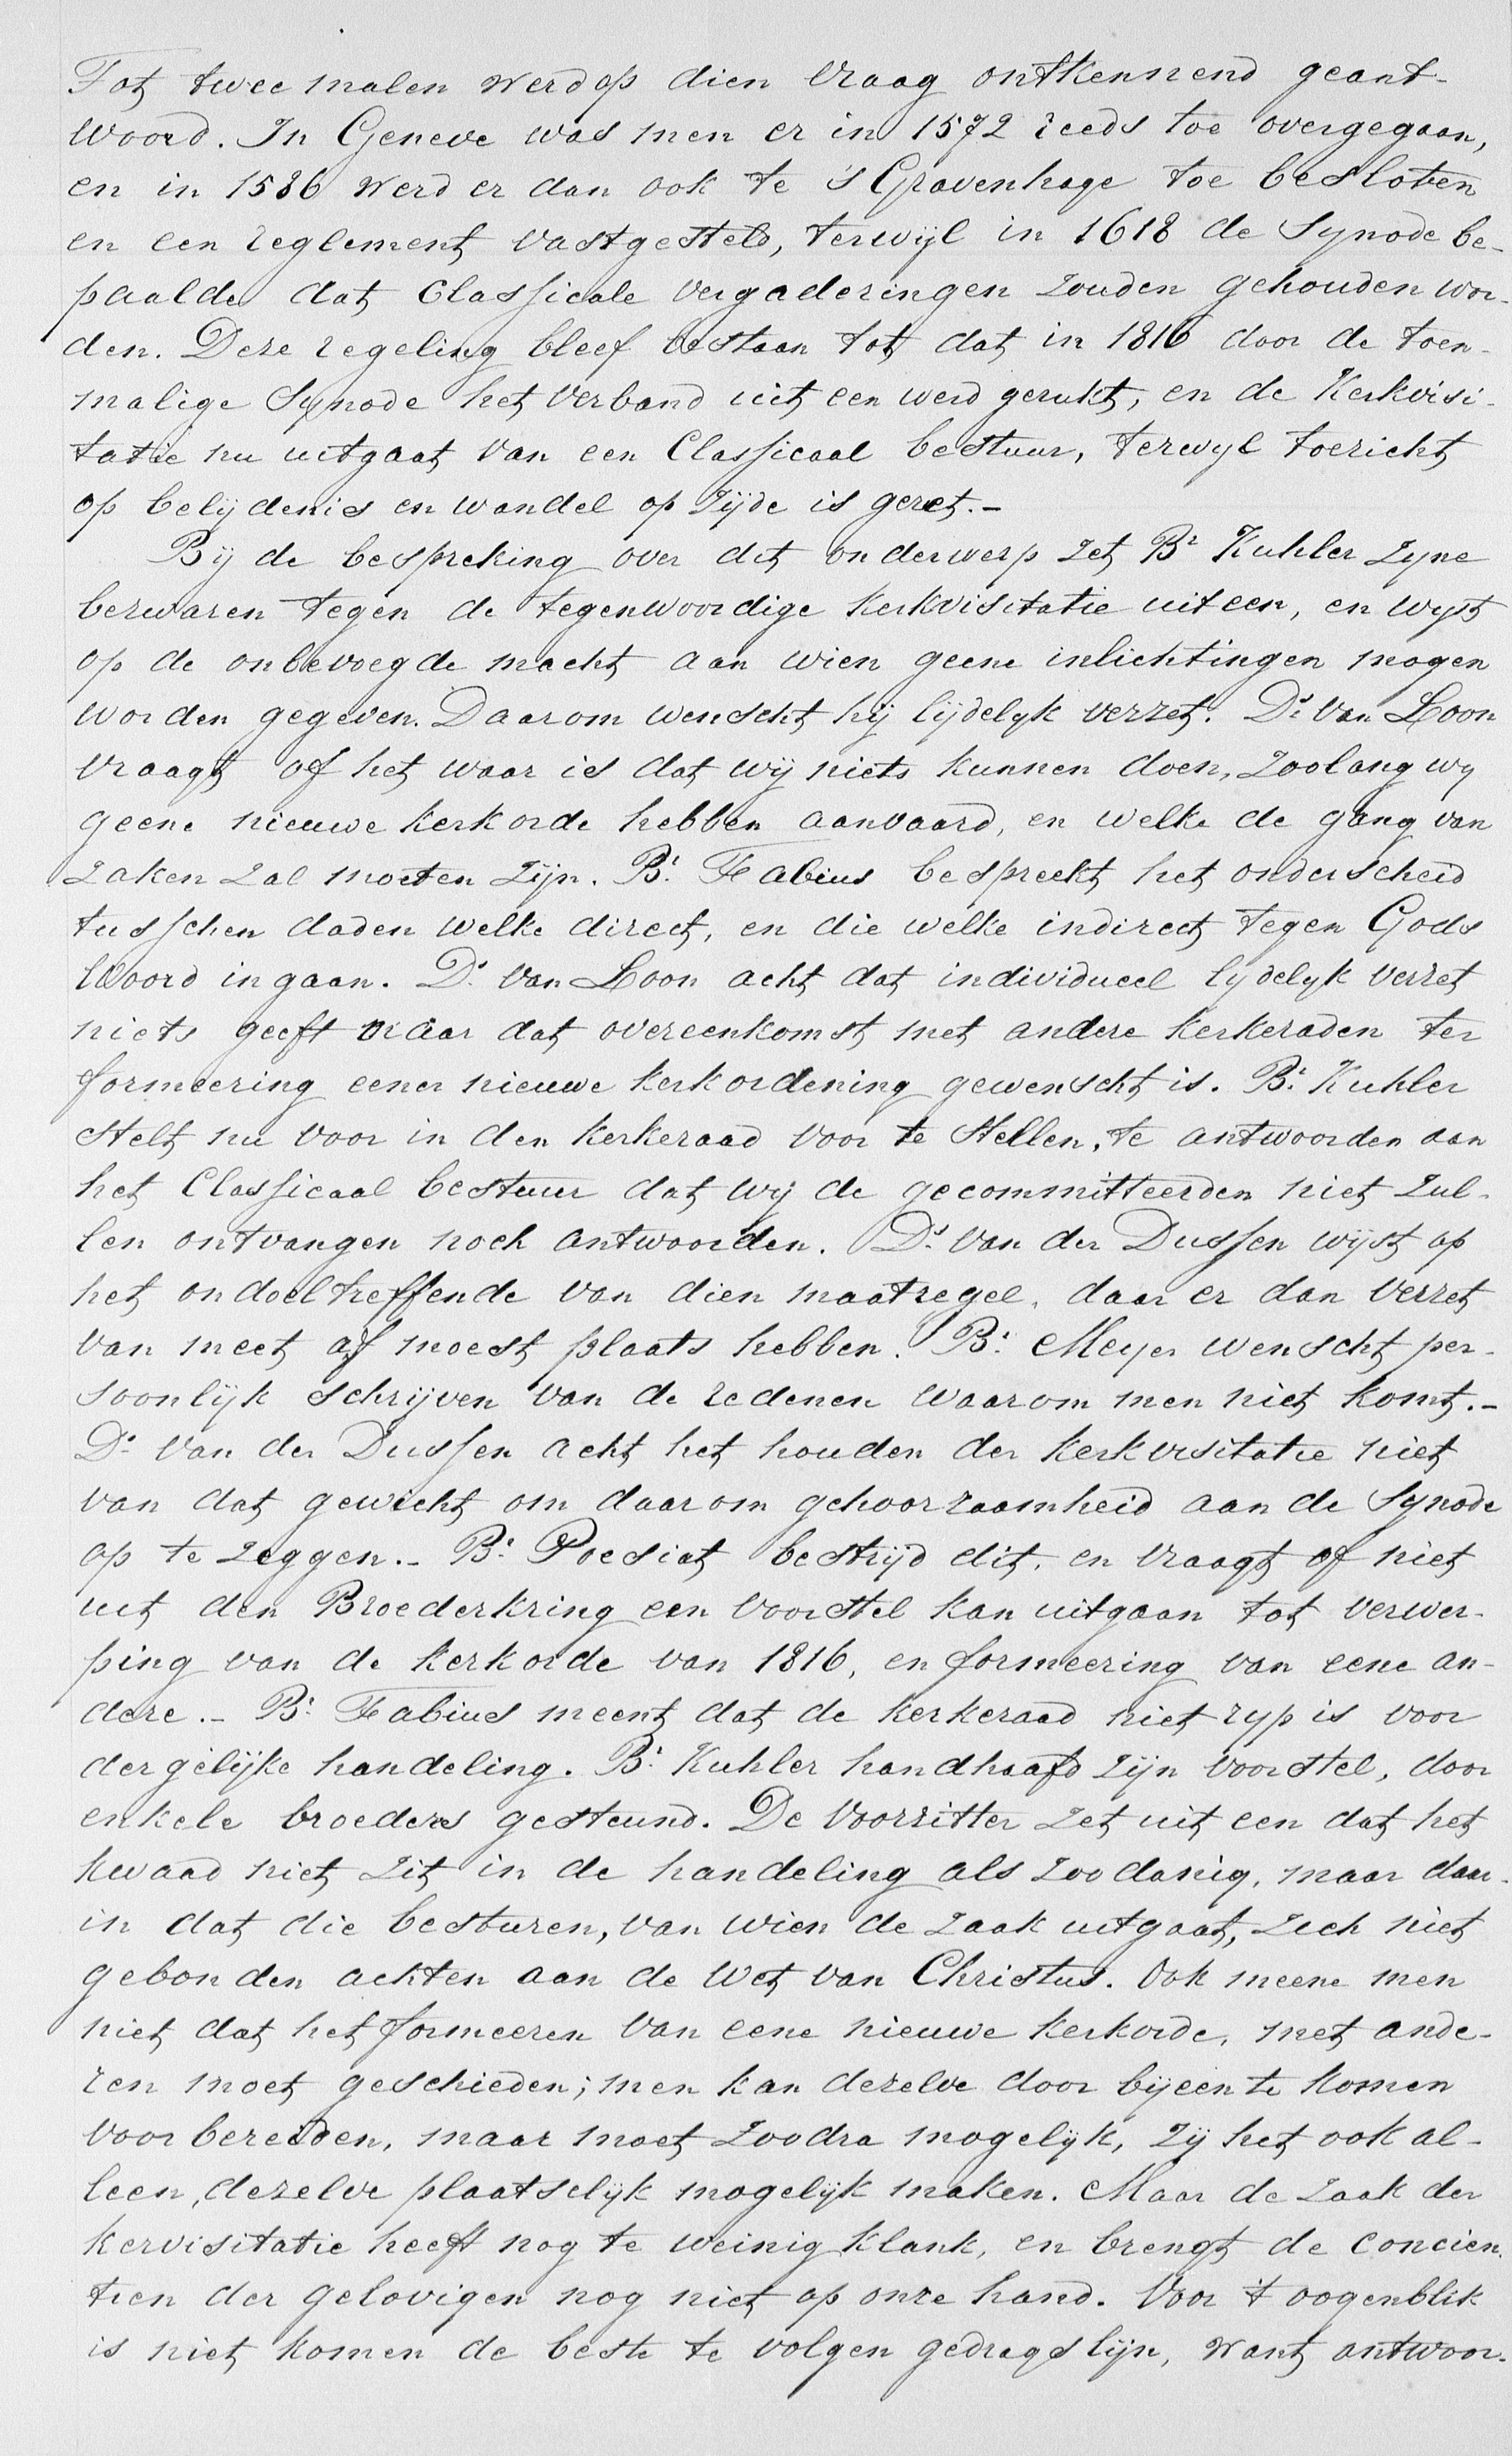 Tot twee malen werd op dien vraag ontkennend geant-
woord. In Geneve was men er in 1572 reeds toe overgegaan,
en in 1586 werd er dan ook te 's Gravenhage toe besloten
en een reglement vastgesteld, terwijl in 1618 de Synode be-
paalde dat Classicale vergaderingen zouden gehouden wor-
den. Deze regeling bleef bestaan tot dat in 1816 door de toen-
malige Synode het verband uit een werd gerukt, en de Kerkvisi-
tatie nu uitgaat van een Classicaal bestuur, terwyl toezicht
op belijdenis en wandel op zijde is gezet.-
Bij de bespreking over dit onderwerp zet Br Kuhler zyne
bezwaren tegen de tegenwoordige kerkvisitatie uiteen, en wyst
op de onbevoegde macht aan wien geene inlichtingen mogen
worden gegeven. Daarom wenscht hij lijdelyk verzet. Ds van Loon
vraagt of het waar is dat wij niets kunnen doen, zoolang wy
geene nieuwe kerkorde hebben aanvaard, en welke de gang van
zaken zal moeten zijn. Br. Fabius bespreekt het onderscheid
tusschen daden welke direct, en die welke indirect tegen Gods
Woord ingaan. Ds. van Loon acht dat individueel lydelyk verzet
niets geeft maar dat overeenkomst met andere kerkeraden ter
formeering eener nieuwe kerkordening gewenscht is. Br. Kuhler
stelt nu voor in den kerkeraad voor te stellen, te antwoorden aan
het Classicaal bestuur dat wij de gecommitteerden niet zul-
len ontvangen noch antwoorden. Ds. van der Dussen wijst op
het ondoeltreffende van dien maatregel, daar er dan verzet
van meet af moest plaats hebben. Br. Meyer wenscht per-
soonlijk schrijven van de redenen waarom men niet komt.-
Ds. van der Dussen acht het houden der kerkvisitatie niet
van dat gewicht om daarom gehoorzaamheid aan de Synode
op te zeggen.- Br. Poesiat bestrijd dit, en vraagt of niet
uit den Broederkring een voorstel kan uitgaan tot verwer-
ping van de kerkorde van 1816, en formeering van eene an-
dere.- Br. Fabius meent dat de kerkeraad niet ryp is voor
dergelijke handeling. Br. Kuhler handhaafd zijn voorstel, door
enkele broeders gesteund. De voorzitter zet uit een dat het
kwaad niet zit in de handeling als zoodanig, maar daar-
in dat die besturen, van wien de zaak uitgaat, zich niet
gebonden achten aan de Wet van Christus. Ook meene men
niet dat het formeeren van eene nieuwe kerkorde, met ande-
ren moet geschieden; men kan dezelve door bijeen te komen
voorbereiden, maar moet zoodra mogelijk, zij het ook al-
leen, dezelve plaatselijk mogelijk maken. Maar de zaak der
kervisitatie heeft nog te weinig klank, en brengt de concien-
tien der gelovigen nog niet op onze hand. Voor 't oogenblik
is niet komen de beste te volgen gedragslijn, want antwoor-